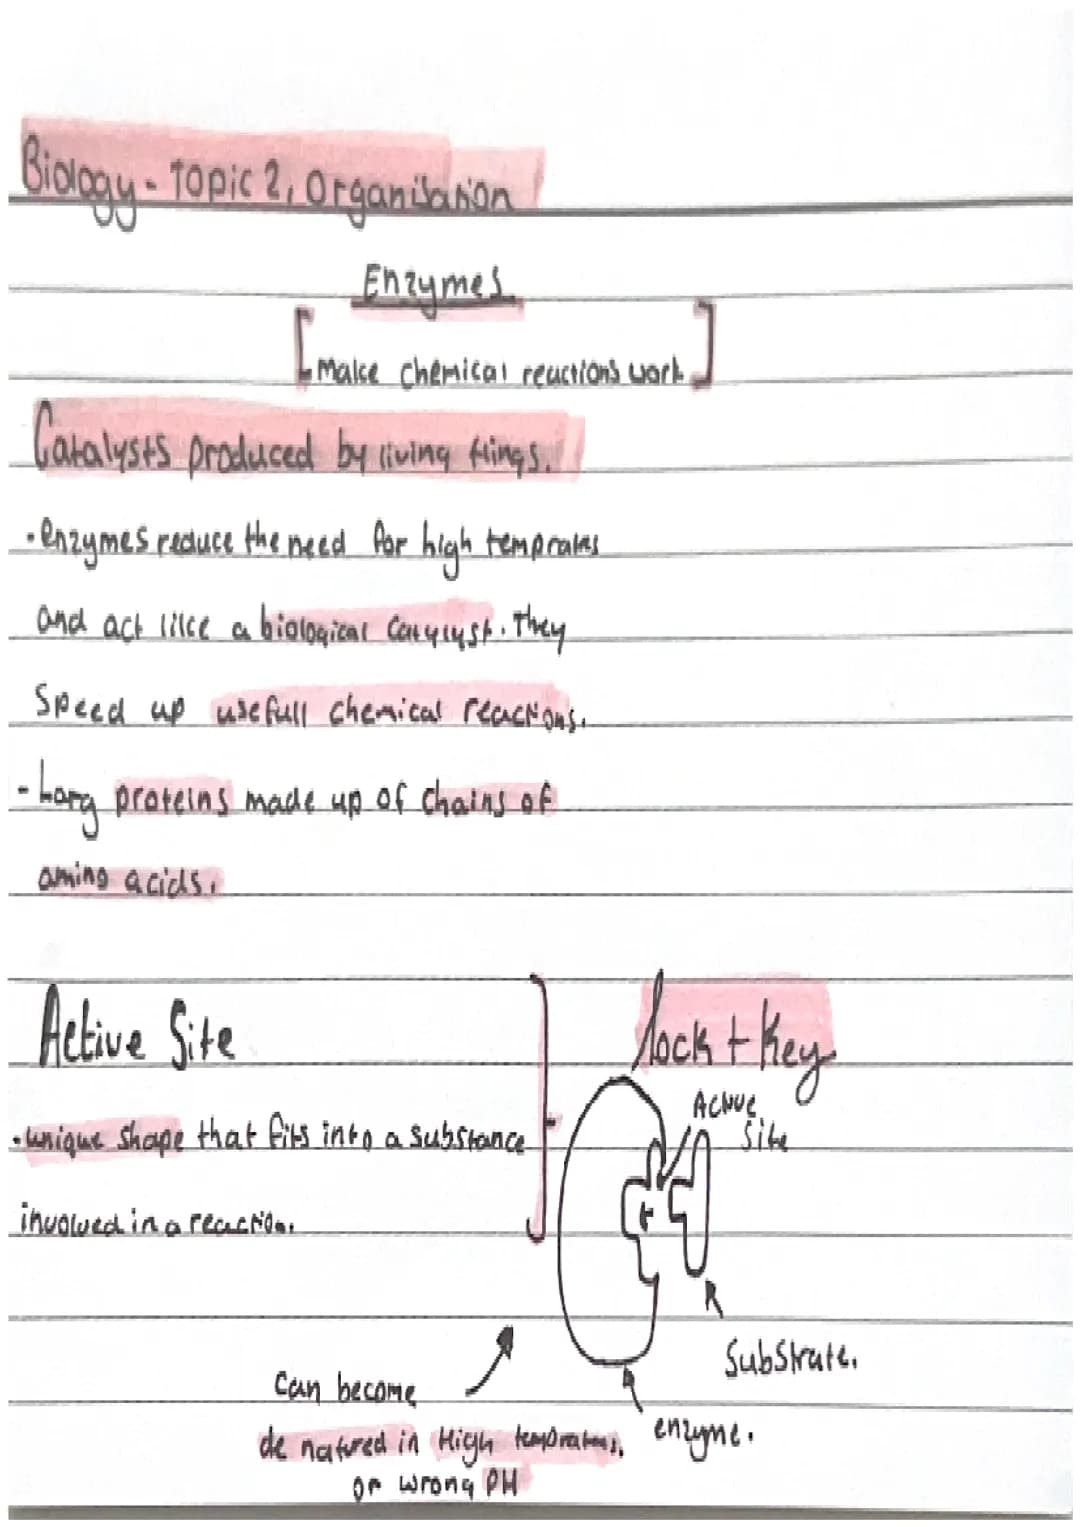 Biology - Topic 2, Organisation
Enzymes
Make chemical reactions work
Catalysts produced by living things.
• enzymes reduce the need for high temprates
and act like a biological catylyst. They
Speed up usefull chemical reactions.
- Long proteins made up of chains of
amino acids.
Active Site
lock + key
• unique shape that fits into a substance
involved in a reaction.
Active
site
Substrate.
enzyme.
Can become
de natured in High temprates,
or wrong PH